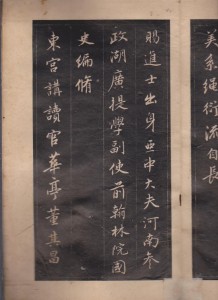 美系绳衍流自長
那進士出身亞中大夫河南叅
政湖廣提學副使前翰林院國
史編脩
東宮講讀官華亭董其昌